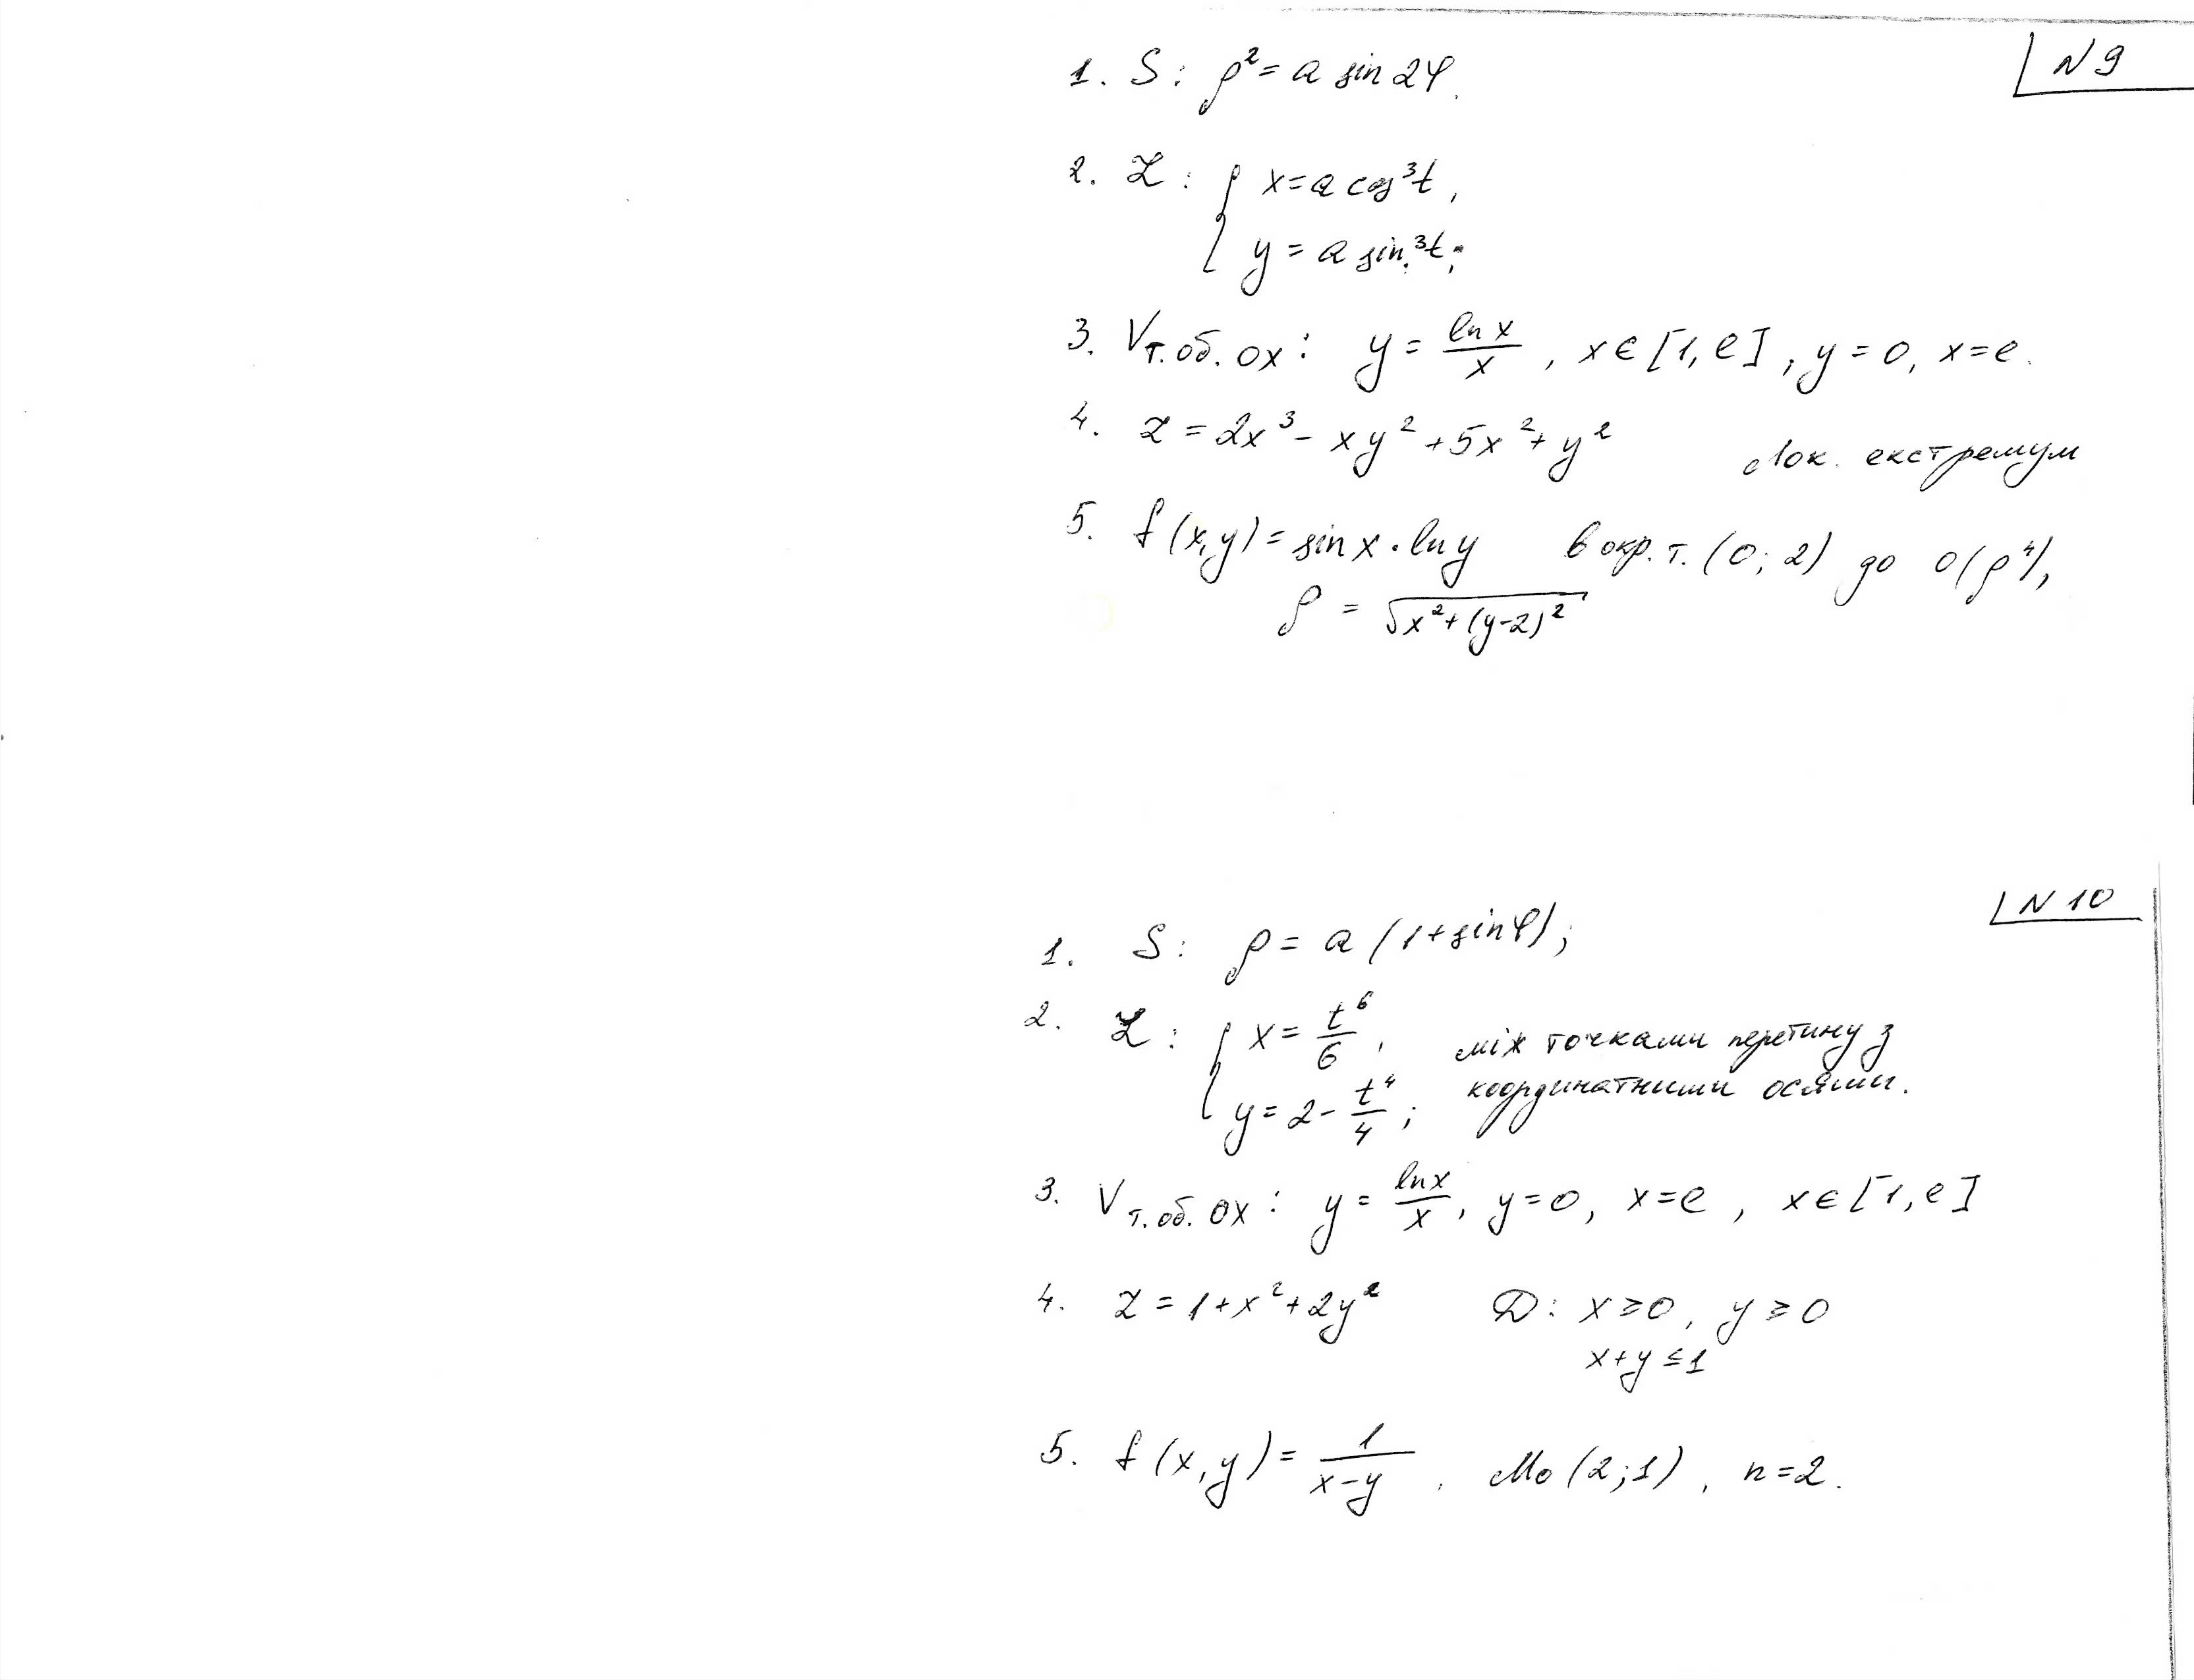 N 9
1. S: ρ² = a sin 2φ.
2. L: { x = a cos³t,
y = a sin³t;
3. Vт. об. ox: y = ln x / x, x ∈ [1, e]; y = 0, x = e.
4. z = 2x³ - xy² + 5x² + y² Лок. екстремум
5. f(x,y) = sin x · ln y в окр. т. (0; 2) до o(ρ⁴),
ρ = √x² + (y-2)²
N 10
1. S: ρ = a (1 + sin φ);
2. L: { x = t⁶/6, між точками перетину з
y = 2 - t⁴/4; координатними осями.
3. V т. об. ox: y = ln x / x, y = 0, x = e, x ∈ [1, e]
4. z = 1 + x² + 2y² D: x ≥ 0, y ≥ 0
x + y ≤ 1
5. f(x,y) = 1/(x-y). M₀ (2; 1), n = 2.